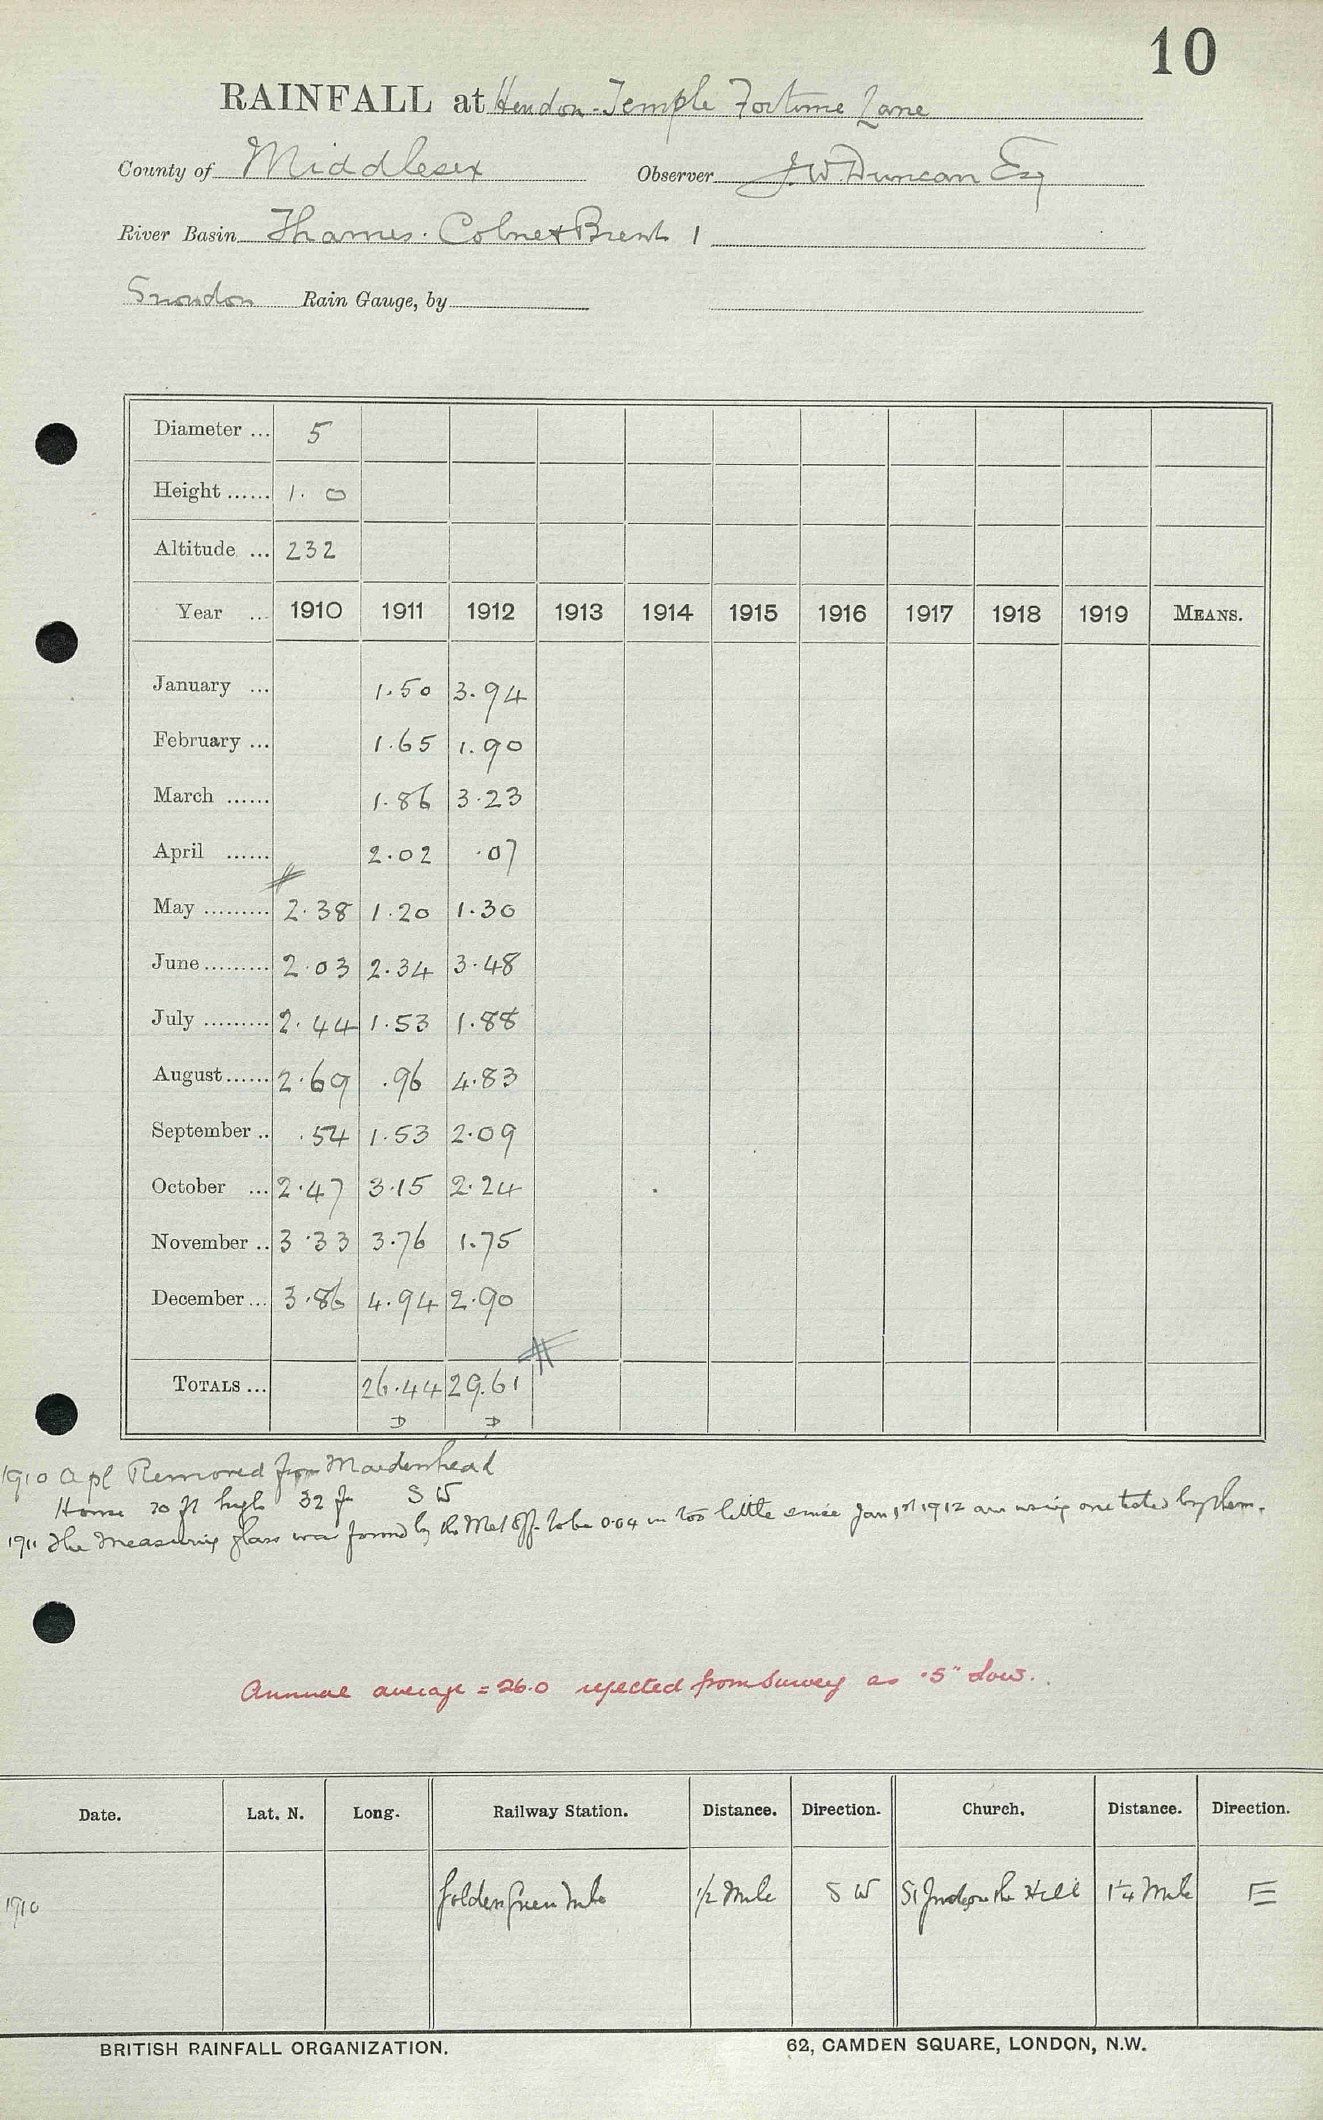 10
RAINFALL at Hendon-Temple Fortune Lane
County of Middlesex Observer J.W. Duncan Esq
River Basin Thames. Colne & Brent 1
Snowdon Rain Gauge, by
Diameter ... 5
Height ...... 1. 0
Altitude ... 232
Year ... 1910 1911 1912 1913 1914 1915 1916 1917 1918 1919 MEANS.
January ... 1.50 3.94
February ... 1.65 1.90
March ...... 1.86 3.23
April ...... 2.02 .07
May ......... 2.38 1.20 1.30
June ......... 2.03 2.34 3.48
July ......... 2.44 1.53 1.88
August ...... 2.69 .96 4.83
September .. .54 1.53 2.09
October ... 2.47 3.15 2.24
November .. 3.33 3.76 1.75
December ... 3.86 4.94 2.90
TOTALS ... 26.44 29.61
D D
1910 Apl Removed from Maidenhead
House 30 ft high 32 ft S W
1911 The measuring glass was found by the Met Off. to be 0.04 in too little since Jan 1st 1912 am using one tested by them.
Annual average = 26.0 rejected from Survey as .5" low.
Date. Lat. N. Long. Railway Station. Distance. Direction. Church. Distance. Direction.
1910 Golders Green Tube 1/2 Mile S W St Jude on the Hill 1/4 Mile E
BRITISH RAINFALL ORGANIZATION. 62, CAMDEN SQUARE, LONDON, N.W.